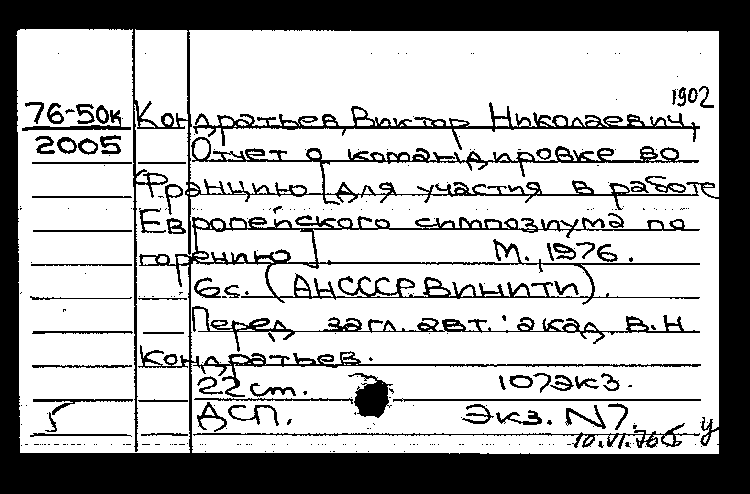 1902
76-50к Кондратьев, Виктор Николаевич,
2005 Отчет о командировке во
Францию [для участия в работе
Европейского симпозиума по
горению]. М., 1976.
6с. (АН СССР. ВИНИТИ).
Перед загл. авт.: акад. В.Н.
Кондратьев.
22 cm. 107экз.
ДСП. Экз. N7.
10.VI.76
у